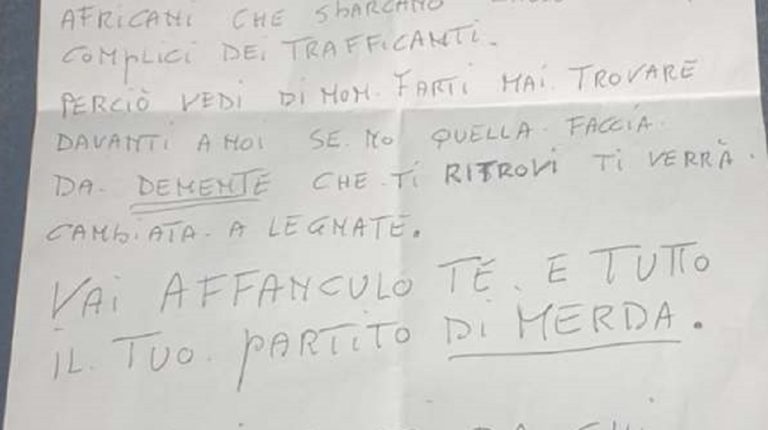 AFRICANI CHE SBARCANO
COMPLICI DEI TRAFFICANTI.
PERCIÒ VEDI DI NON. FARTI MAI. TROVARE
DAVANTI A NOI SE. NO QUELLA. FACCIA.
DA. DEMENTE CHE. TI RITROVI TI VERRÀ.
CAMBIATA. A LEGNATE.
VAI AFFANCULO TE. E TUTTO
IL. TUO. PARTITO DI MERDA.